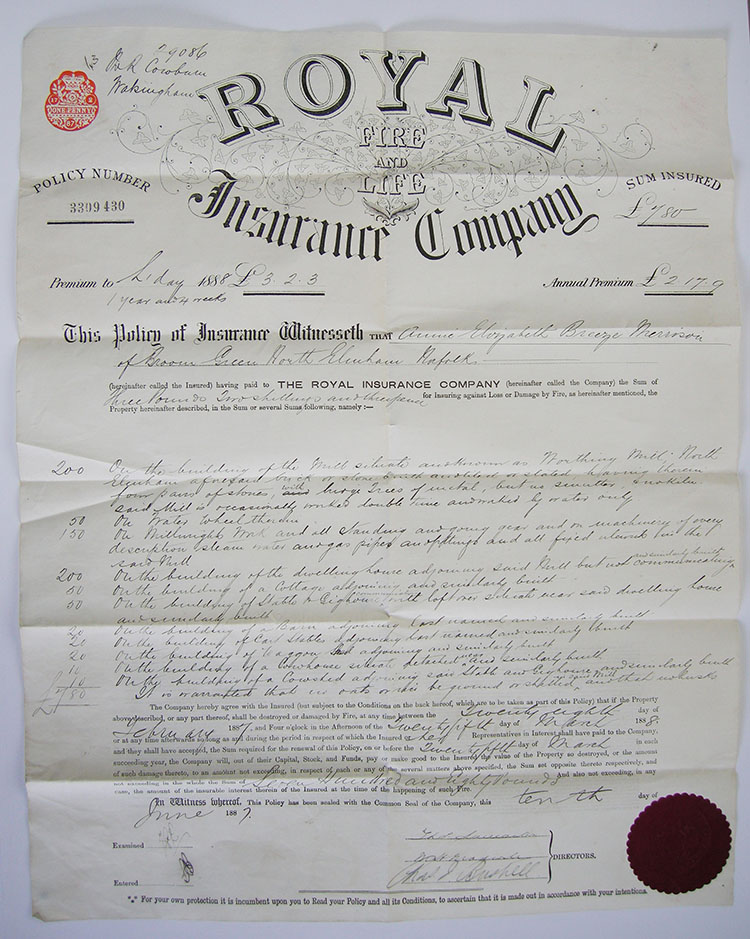 29086
Cowburn
Wokingham
ONE PENNY
ROYAL
FIRE
AND
LIFE
Insurance Company
POLICY NUMBER
3399430
SUM INSURED
£780
Premium to L. day 1888 £3.2.3
1 year and 4 weeks
Annual Premium £2.17.9
This Policy of Insurance Witnesseth THAT Annie Elizabeth Breeze Merrison
of Broom Green North Elmham Norfolk
(hereinafter called the Insured) having paid to THE ROYAL INSURANCE COMPANY (hereinafter called the Company) the Sum of
Three Pounds Two shillings and threepence for Insuring against Loss or Damage by Fire, as hereinafter mentioned, the
Property hereinafter described, in the Sum or several Sums following, namely :—
200 On the building of the Mill situate and known as Worthing Mill North
Elmham aforesaid brick or stone built and tiled or slated having therein
four pairs of stones, with of metal, but no smutter or kiln
said Mill is occasionally worked double time and worked by water only
50 On Water wheel therein
150 On Millwright Work and all standing and going gear and on machinery of every
description steam water and gas pipes and fittings and all fixed utensils in the
said Mill
200 On the building of the dwelling house adjoining said Mill but not communicating and similarly built
50 On the building of a Cottage adjoining and similarly built
50 On the building of Stable & with loft over situate near said dwelling house
and similarly built
20 On the building of Barn adjoining last named and similarly built
20 On the building of Cart Stables adjoining last named and similarly built
20 On the building of Waggon adjoining and similarly built
10 On the building of a Cowhouse situate detached near and similarly built
10 On the building of a Cowshed adjoining said Stable and and similarly built
£780 It is warranted that no oats or rice be ground or shelled in said Mill and that no
The Company hereby agree with the Insured (but subject to the Conditions on the back hereof, which are to be taken as part of this Policy) that if the Property
above described, or any part thereof, shall be destroyed or damaged by Fire, at any time between the Twenty eighth day of
February 1887, and Four o'clock in the Afternoon of the Twenty fifth day of March 1888.
or at any time afterwards so long as and during the period in respect of which the Insured or her Representatives in Interest shall have paid to the Company,
and they shall have accepted, the Sum required for the renewal of this Policy, on or before the Twenty fifth day of March in each
succeeding year, the Company will, out of their Capital, Stock, and Funds, pay or make good to the Insured the value of the Property so destroyed, or the amount
of such damage thereto, to an amount not exceeding, in respect of each or any of the several matters above specified, the Sum set opposite thereto respectively, and
not exceeding in the whole the Sum of Seven Hundred and Eighty Pounds And also not exceeding, in any
case, the amount of the insurable interest therein of the Insured at the time of the happening of such Fire.
In Witness whereof, This Policy has been sealed with the Common Seal of the Company, this tenth day of
June 1887.
Examined
Entered
DIRECTORS.
*** For your own protection it is incumbent upon you to Read your Policy and all its Conditions, to ascertain that it is made out in accordance with your intentions.